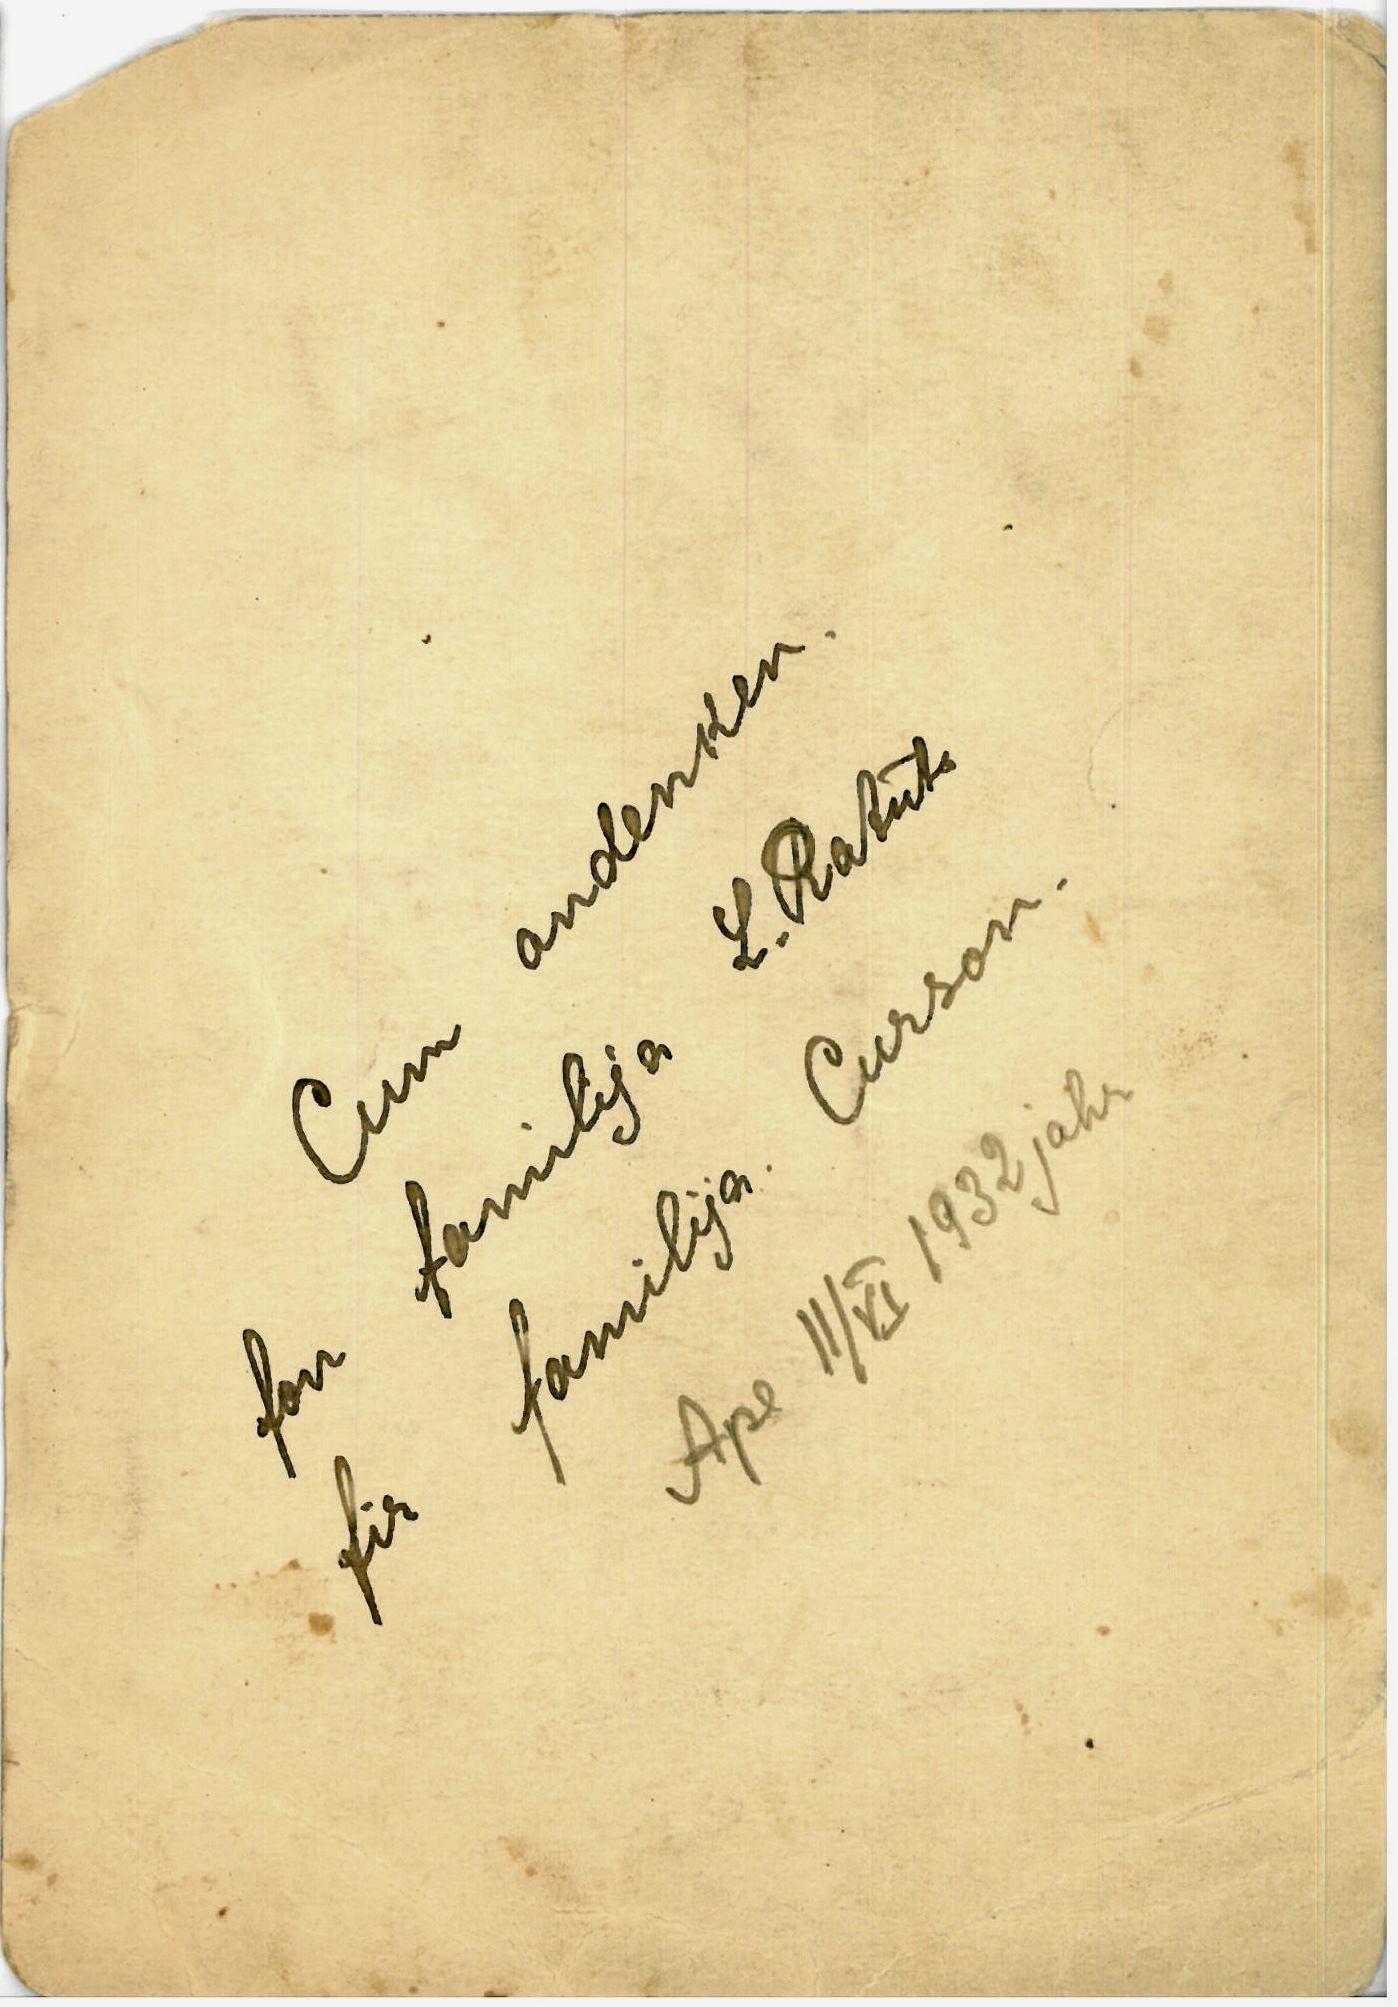 Cum andenken.
fon familija L. Ratut.
fir familija. Curson.
Ape 11/VI 1932 jahr